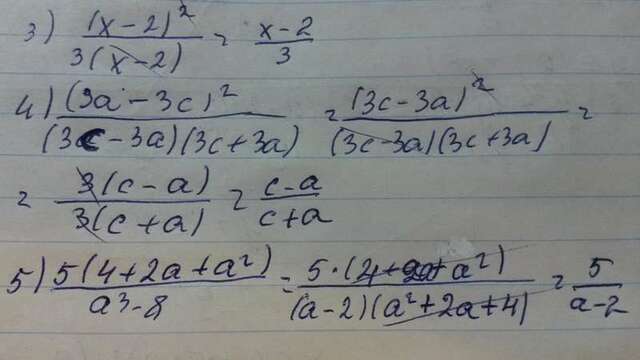 3) (x-2)² / 3(x-2) = x-2 / 3
4) (3a-3c)² / (3c-3a)(3c+3a) = (3c-3a)² / (3c-3a)(3c+3a) =
= 3(c-a) / 3(c+a) = c-a / c+a
5) 5(4+2a+a²) / a³-8 = 5·(4+2a+a²) / (a-2)(a²+2a+4) = 5 / a-2